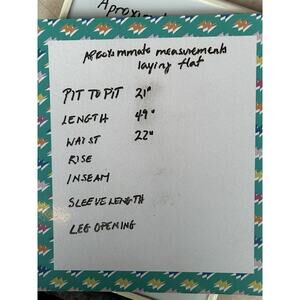 Aproxi
Approximmate measurements
laying flat
PIT TO PIT 21"
LENGTH 49"
WAIST 22"
RISE
INSEAM
SLEEVE LENGTH
LEG OPENING